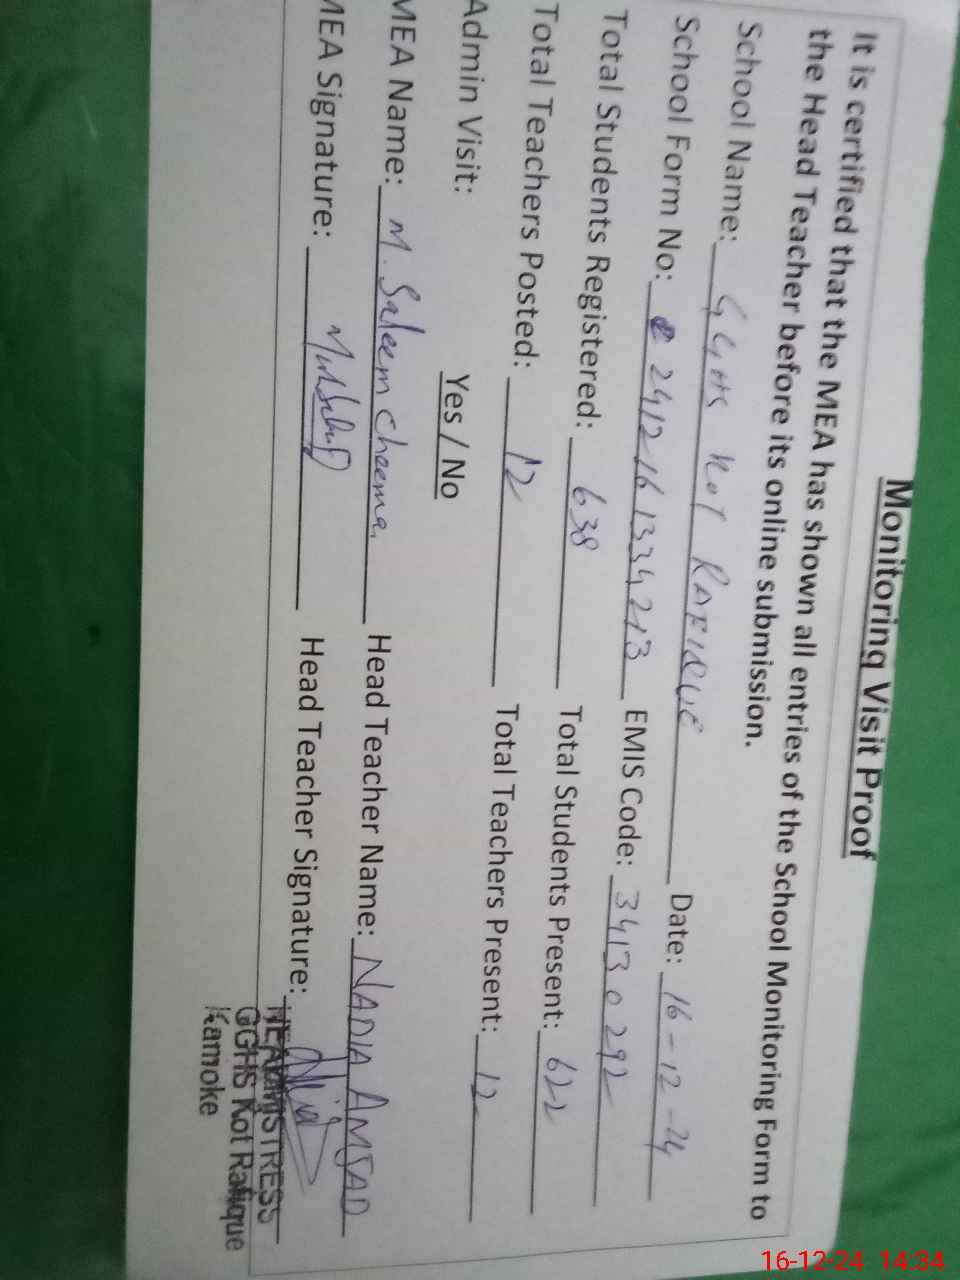 Monitoring Visit Proof
It is certified that the MEA has shown all entries of the School Monitoring Form to
the Head Teacher before its online submission.
School Name: GGHS KOT RAFIQUE Date: 16-12-24
School Form No: 2412161334213 EMIS Code: 34130292
Total Students Registered: 638 Total Students Present: 622
Total Teachers Posted: 12 Total Teachers Present: 12
Admin Visit: Yes / No
MEA Name: M. Saleem Cheema Head Teacher Name: NADIA AMJAD
MEA Signature: Head Teacher Signature:
HEADMISTRESS
GGHS Kot Rafique
Kamoke
16-12-24 14:34